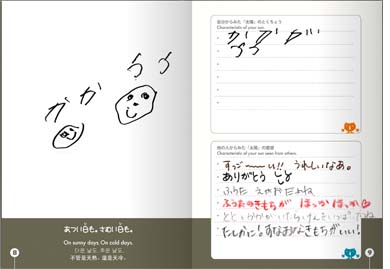 うう
かか
あつい日も。さむい日も。
On sunny days. On cold days.
더운 날도. 추운 날도.
不管是天熱，還是天冷。
8
自分からみた「太陽」のとくちょう
Characteristic of your sun.
かががが
うう
他の人からみた「太陽」の感想
Characteristic of your sun seen from others.
すっごーい!! うれしいなあ。
ありがとう
ふうた えがおだよね
ふうたのきもちが ほっかほっか♡
たしかに! すなおなきもちがいい!
9